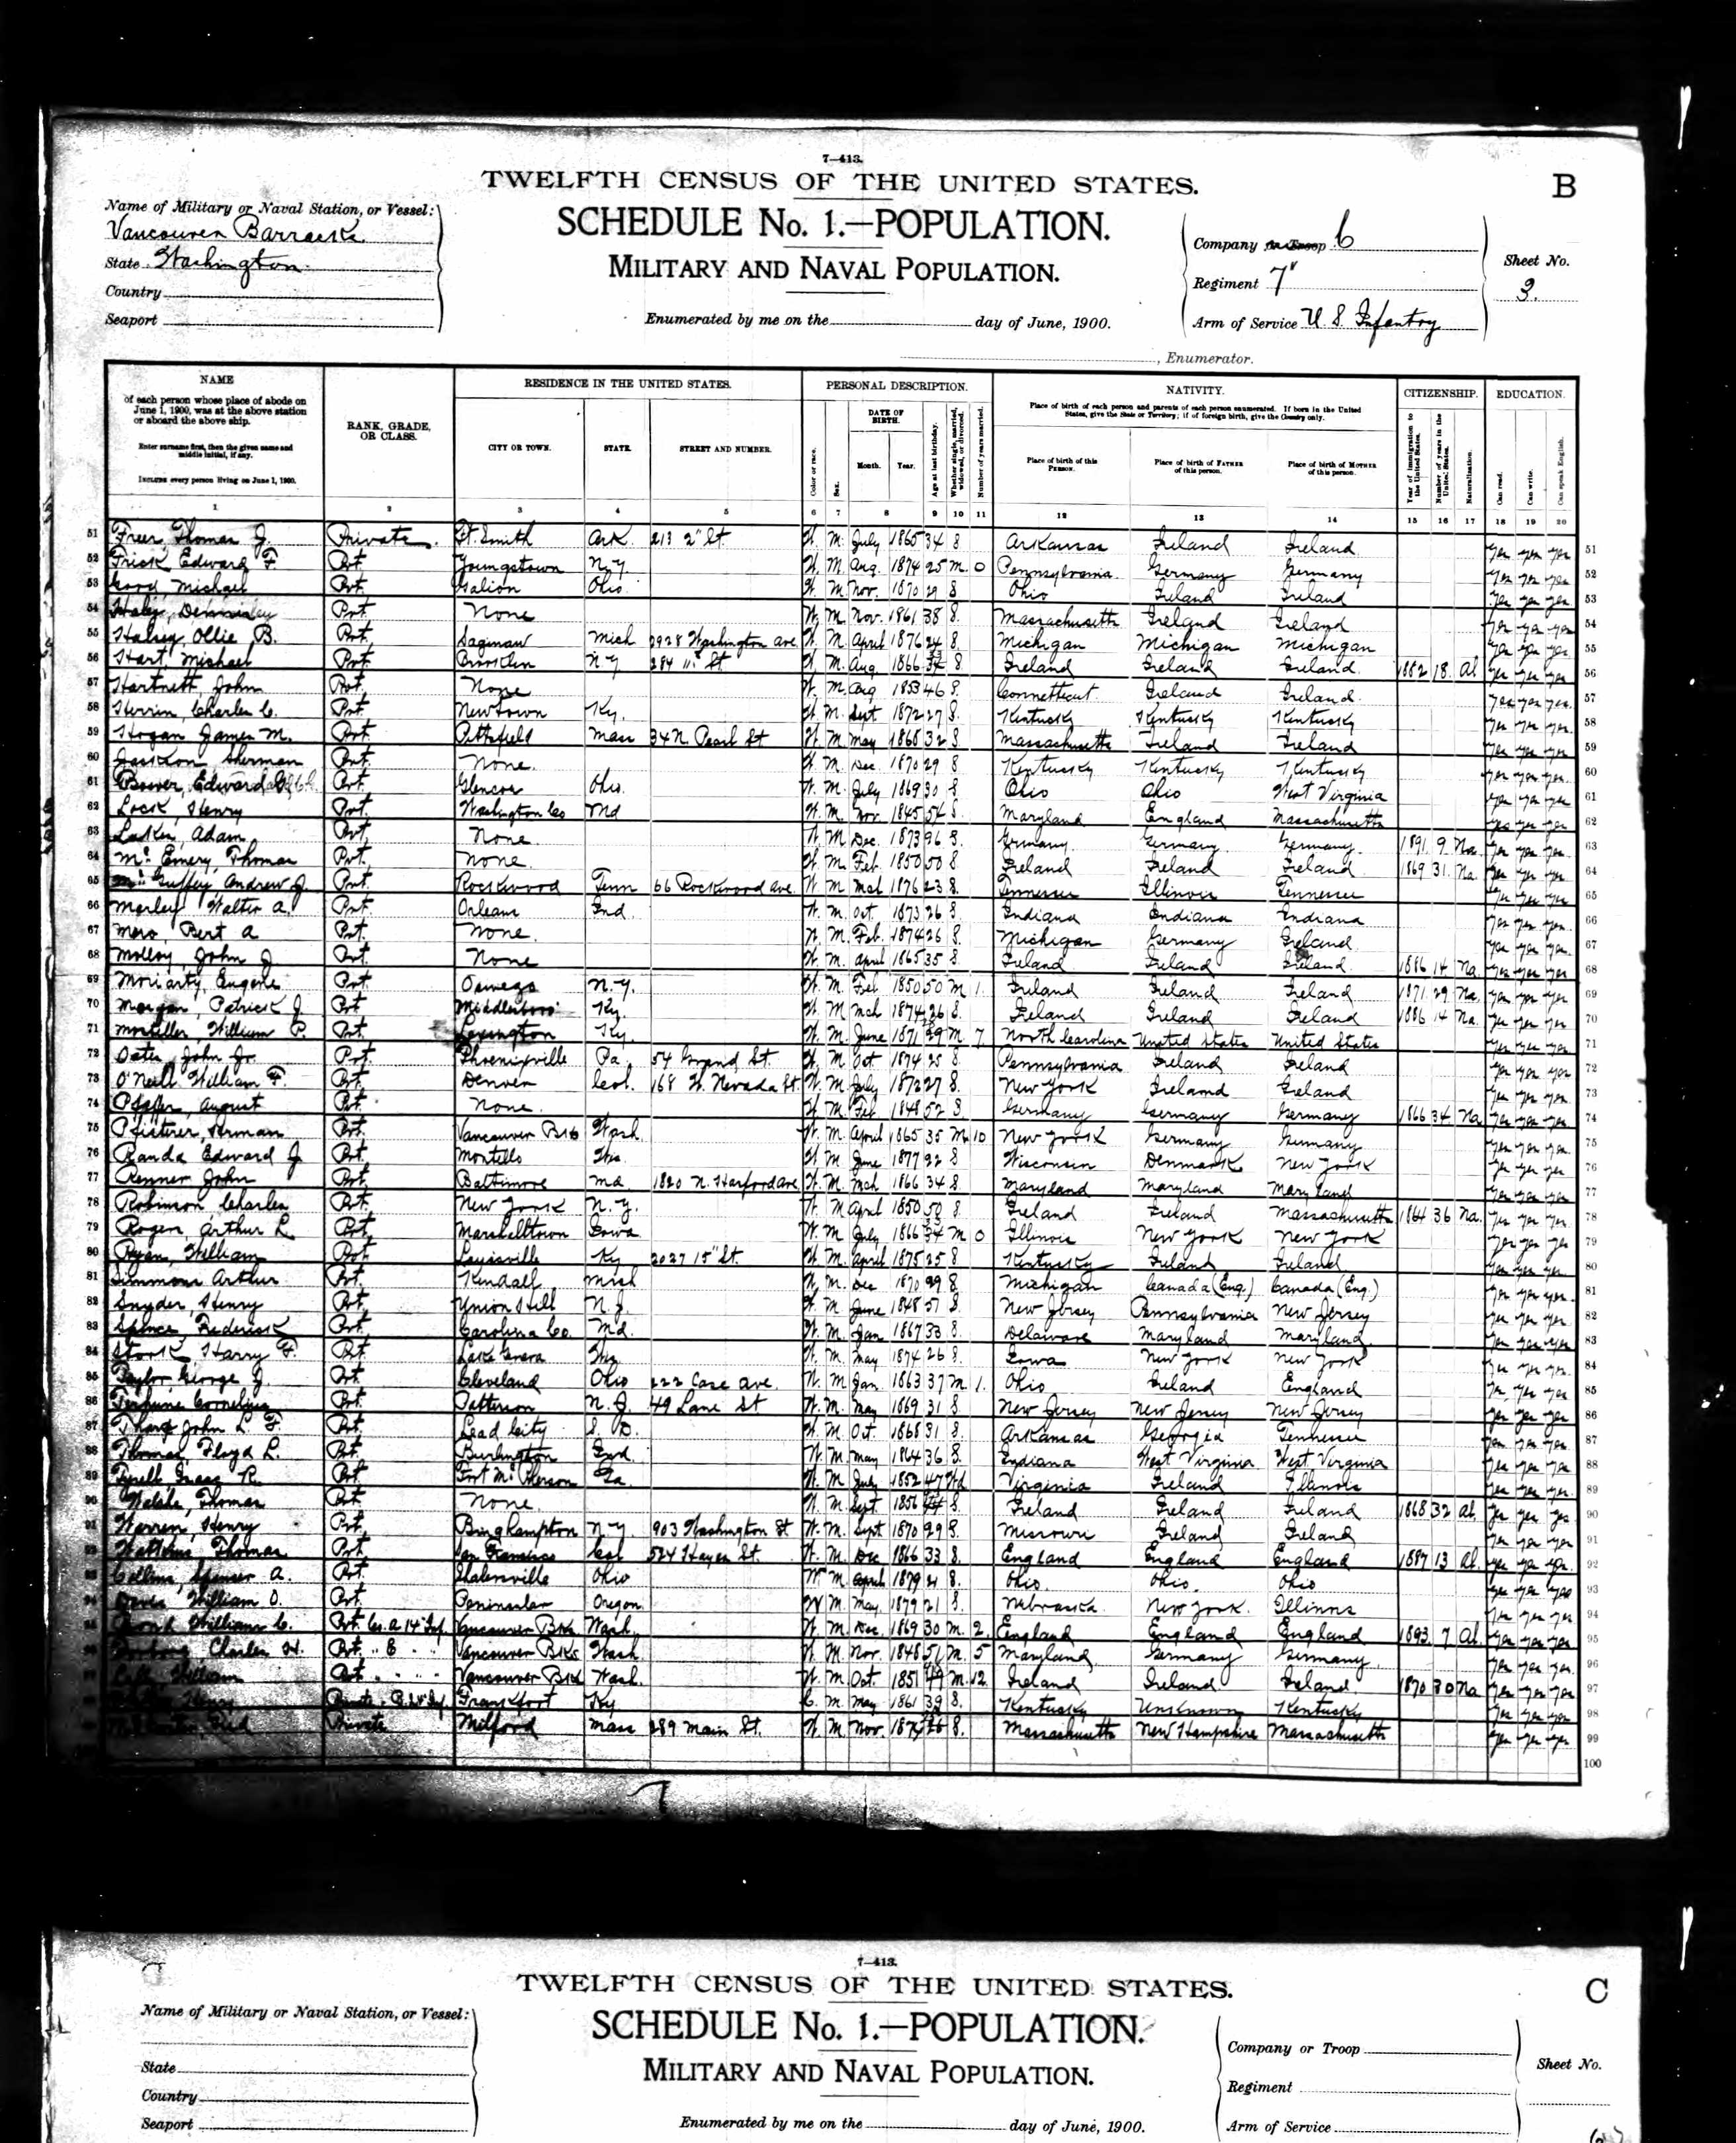 7—413.
TWELFTH CENSUS OF THE UNITED STATES.
B
SCHEDULE No. 1.—POPULATION.
MILITARY AND NAVAL POPULATION.
Name of Military or Naval Station, or Vessel:
Vancouver Barracks
State Washington
Country
Seaport
Enumerated by me on the day of June, 1900.
, Enumerator.
Company or Troop
Regiment 7"
Arm of Service U. S. Infantry
Sheet No.
3.
NAME
of each person whose place of abode on June 1, 1900, was at the above station or aboard the above ship.
Enter surname first, then the given name and middle initial, if any.
INCLUDE every person living on June 1, 1900.
RANK, GRADE, OR CLASS.
RESIDENCE IN THE UNITED STATES.
CITY OR TOWN. STATE. STREET AND NUMBER.
PERSONAL DESCRIPTION.
Color or race. Sex. DATE OF BIRTH. Month. Year. Age at last birthday. Whether single, married, widowed, or divorced. Number of years married.
NATIVITY.
Place of birth of each person and parents of each person enumerated. If born in the United States, give the State or Territory; if of foreign birth, give the Country only.
Place of birth of this PERSON. Place of birth of FATHER of this person. Place of birth of MOTHER of this person.
CITIZENSHIP.
Year of immigration to the United States. Number of years in the United States. Naturalization.
EDUCATION.
Can read. Can write. Can speak English.
1 2 3 4 5 6 7 8 9 10 11 12 13 14 15 16 17 18 19 20
51 Freer Thomas J. Private Ft. Smith Ark. 213 2" St. W. M. July 1865 34 S Arkansas Ireland Ireland yes yes yes 51
52 Frick Edward F Pvt. Youngstown N.Y. W. M. Aug. 1874 25 M. 0 Pennsylvania Germany Germany yes yes yes 52
53 Good, Michael Pvt. Galion Ohio W. M. Nov. 1870 29 S Ohio Ireland Ireland yes yes yes 53
54 Pvt. None W. M. Nov. 1861 38 S. Massachusetts Ireland Ireland yes yes yes 54
55 Halsey Ollie B. Pvt. Saginaw Mich 2928 Washington ave W. M. April 1876 24 S. Michigan Michigan Michigan yes yes yes 55
56 Hart, Michael Pvt. Brooklyn N Y 284 St W. M. Aug. 1866 S Ireland Ireland Ireland 1882 18. Al yes yes yes 56
57 Hartnett, John Pvt. None W. M. Aug 1853 46 S. Connecticut Ireland Ireland yes yes yes 57
58 Herrin, Charles C. Pvt. Newtown Ky. W. M. Sept 1872 27 S. Kentucky Kentucky Kentucky yes yes yes 58
59 Hogan James M. Pvt. Pittsfield Mass 34 N. Pearl St W. M. May 1868 32 S Massachusetts Ireland Ireland yes yes yes 59
60 Jackson Sherman Pvt. None. W. M. Dec. 1870 29 S Kentucky Kentucky Kentucky yes yes yes 60
61 Bower, Edward Pvt. Glencoe Ohio. W. M. July 1869 30 S Ohio Ohio West Virginia yes yes yes 61
62 Lock, Henry Pvt. Washington Co Md W. M. Nov. 1845 54 S. Maryland England Massachusetts yes yes yes 62
63 Adam Pvt. None. W. M. Dec. 1873 26 S. Germany Germany Germany 1891 9 Na yes yes yes 63
64 Mc Emery, Thomas Pvt. None. W. M. Feb. 1850 50 S Ireland Ireland Ireland 1869 31. Na. yes yes yes 64
65 Mc Guffey, Andrew J. Pvt. Rockwood Tenn 66 Rockwood ave. W. M. Mch 1876 23 S. Tennessee Illinois Tennessee yes yes yes 65
66 Morley Walter A. Pvt. Orleans Ind. W. M. Oct. 1873 26 S. Indiana Indiana Indiana yes yes yes 66
67 Bert A Pvt. None. W. M. Feb. 1874 26 S. Michigan Germany Ireland yes yes yes 67
68 Molloy, John J Pvt. None W. M. April 1865 35 S. Ireland Ireland Ireland 1886 14 Na yes yes yes 68
69 Moriarty, Eugene Pvt. Oswego N.Y. W. M. Feb 1850 50 M 1. Ireland Ireland Ireland 1871 29 Na. yes yes yes 69
70 Morgan, Patrick J Pvt Middlesboro Ky. W. M Mch 1874 26 S Ireland Ireland Ireland 1886 14 Na. yes yes yes 70
71 William P. Pvt. Lexington Ky. W. M. June 1871 29 M 7 North Carolina United States United States yes yes yes 71
72 Oates, John Jr Pvt. Phoenixville Pa. 54 Grand St. W. M Oct 1874 25 S. Pennsylvania Ireland Ireland yes yes yes 72
73 O'Neill William F. Pvt. Denver Col. 168 W. Nevada St. W. M. July 1872 27 S. New York Ireland Ireland yes yes yes 73
74 August Pvt. None. W. M. Feb 1848 52 S. Germany Germany Germany 1866 34 Na yes yes yes 74
75 Pfisterer, Herman Pvt. Vancouver Bks Wash. W. M. April 1865 35 M 10 New York Germany Germany yes yes yes 75
76 Randa Edward J Pvt. Montello Wis. W M. June 1877 22 S Wisconsin Denmark New York yes yes yes 76
77 Renner John Pvt. Baltimore Md. 1820 N. Harford ave W. M. Mch 1866 34 S Maryland Maryland Maryland yes yes yes 77
78 Robinson Charles Pvt. New York N.Y. W. M April 1850 50 S. Ireland Ireland Massachusetts 1864 36 Na. yes yes yes 78
79 Rogers Arthur L Pvt. Marshalltown Iowa W. M. July 1866 M 0 Illinois New York New York yes yes yes 79
80 Ryan, William Pvt. Louisville Ky 2027 15" St. W. M. April 1875 25 S Kentucky Ireland Ireland yes yes yes 80
81 Simmons Arthur Pvt. Kendall Mich W. M. Dec 1870 29 S Michigan Canada (Eng.) Canada (Eng.) yes yes yes 81
82 Snyder, Henry Pvt. Union Hill N.J. W. M. June 1848 51 S. New Jersey Pennsylvania New Jersey yes yes yes 82
83 Spence, Frederick Pvt. Carolina Co. Md. W. M. Jan 1867 33 S. Delaware Maryland Maryland yes yes yes 83
84 Stork Harry F. Pvt. Lake W. M. May 1874 26 S. Iowa New York New York yes yes yes 84
85 Taylor George J. Pvt. Cleveland Ohio 222 Case ave. W. M Jan. 1863 37 M 1. Ohio Ireland England yes yes yes 85
86 Terhune Cornelius Pvt. Patterson N.J. 49 Lane St W. M. May 1869 31 S New Jersey New Jersey New Jersey yes yes yes 86
87 Tharp John L. F. Pvt. Lead City S. D. W. M. Oct. 1868 31 S. Arkansas Georgia Tennessee yes yes yes 87
88 Thomas, Floyd L. Pvt. Burlington Ind. W. M. May 1864 36 S. Indiana West Virginia West Virginia yes yes yes 88
89 Tyrell Isaac R. Pvt. Fort McPherson Ga. W. M. July 1852 47 Wd. Virginia Ireland Illinois yes yes yes 89
90 Walshe, Thomas Pvt. None. W. M. Sept. 1856 S. Ireland Ireland Ireland 1868 32 Al. yes yes yes 90
91 Warren, Henry Pvt. Binghampton N.Y. 903 Washington St W. M. Sept 1870 29 S. Missouri Ireland Ireland yes yes yes 91
92 Thomas Pvt. San Francisco Cal 524 Hayes St. W. M. Dec 1866 33 S. England England England 1887 13 Al. yes yes yes 92
93 Collins, Spencer A. Pvt. Shalersville Ohio W M. April 1879 21 S. Ohio. Ohio. Ohio yes yes yes 93
94 Davis William O. Pvt. Peninsular Oregon W M. May 1879 21 S. Nebraska. New York. Illinois yes yes yes 94
95 William C. Pvt. Co. A 14" Inf. Vancouver Bks Wash. W. M. Dec. 1869 30 M. 2. England England England 1893 7 Al. yes yes yes 95
96 Charles H. Pvt. " E " " Vancouver Bks Wash W. M. Nov. 1848 51 M. 5 Maryland Germany Germany yes yes yes 96
97 William Pvt. " " " Vancouver Bks Wash. W. M. Oct. 1851 M. 12. Ireland Ireland Ireland 1870 30 Na yes yes yes 97
98 Frankfort Ky C. M. May 1861 39 S. Kentucky Unknown Kentucky yes yes yes 98
Private Milford Mass 289 Main St. W. M. Nov. S. Massachusetts New Hampshire Massachusetts yes yes yes 99
100
7—413.
TWELFTH CENSUS OF THE UNITED STATES.
C
SCHEDULE No. 1.—POPULATION.
MILITARY AND NAVAL POPULATION.
Name of Military or Naval Station, or Vessel:
State
Country
Seaport
Enumerated by me on the day of June, 1900.
Company or Troop
Regiment
Arm of Service
Sheet No.